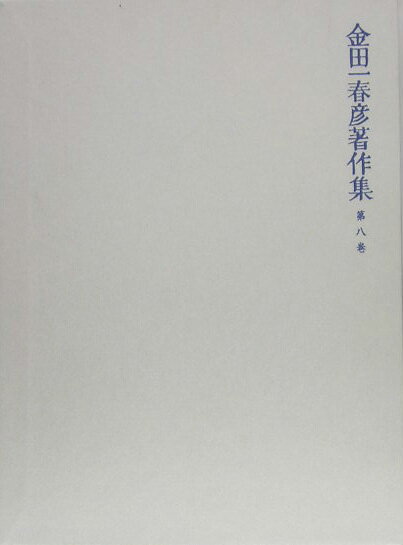 金田一春彦著作集 第八巻